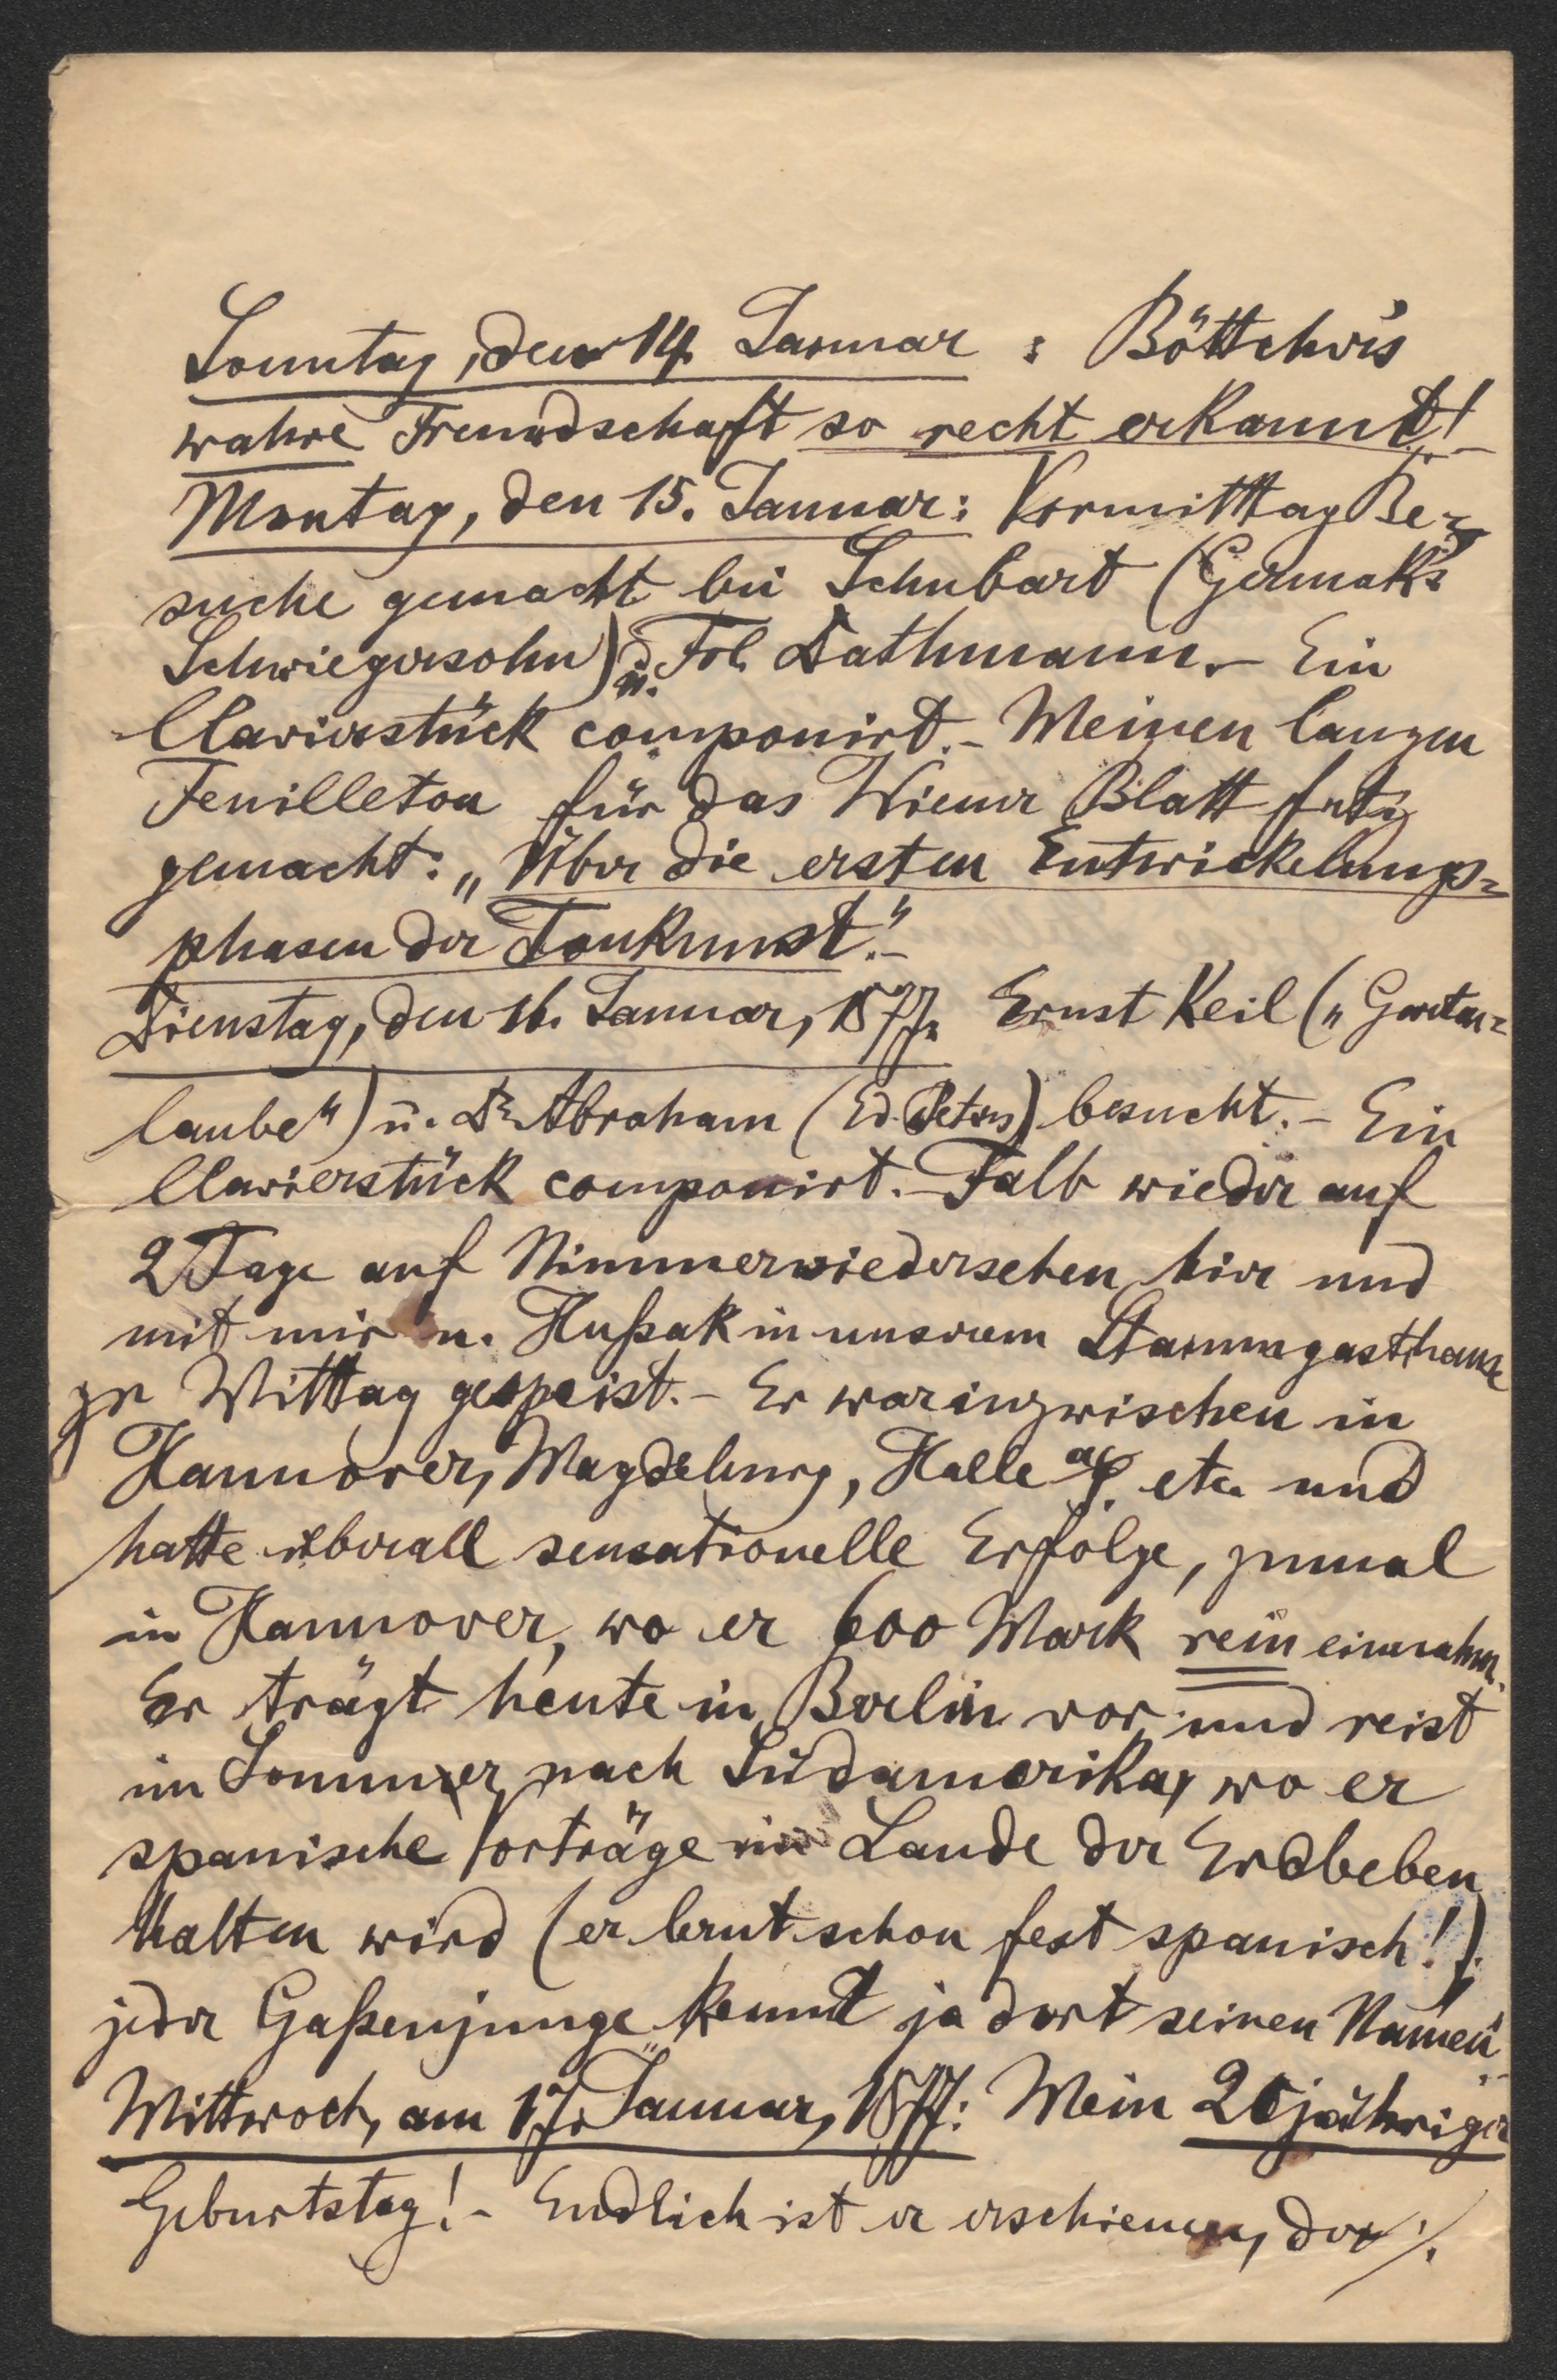 Sonntag, den 14. Januar : Böttcher's
wahre Freundschaft so recht erkannt! –
Montag, den 15. Januar: Vormittag Be-
suche gemacht bei Schubart (Germak's
Schwiegersohn) u. Frl. Dathmann. – Ein
Clavierstück componirt. – Meinen langen
Feuilleton für das Wiener Blatt fertig
gemacht: „Über die ersten Entwickelungs-
phasen der Tonkunst". –
Dienstag, den 16. Januar, 1877. Ernst Keil („Garten-
laube") u. Dr. Abraham (Ed. Peters) besucht. – Ein
Clavierstück componirt. – Falb wieder auf
2 Tage auf Nimmerwiedersehen hier und
mit mir u. Hußak in unserem Stammgasthause
zu Mittag gespeist. – Er war inzwischen in
Hannover, Magdeburg, Halle etc. und
hatte überall sensationelle Erfolge, zumal
in Hannover, wo er 600 Mark rein einnahm.
Er trägt heute in Berlin vor und reist
im Sommer nach Südamerika, wo er
spanische Vorträge im Lande der Erdbeben
halten wird (er lernt schon fest spanisch!).
jeder Gaßenjunge kennt ja dort seinen Namen
Mittwoch, am 17. Januar, 1877: Mein 20jähriger
Geburtstag! – Endlich ist er erschienen, der ./.